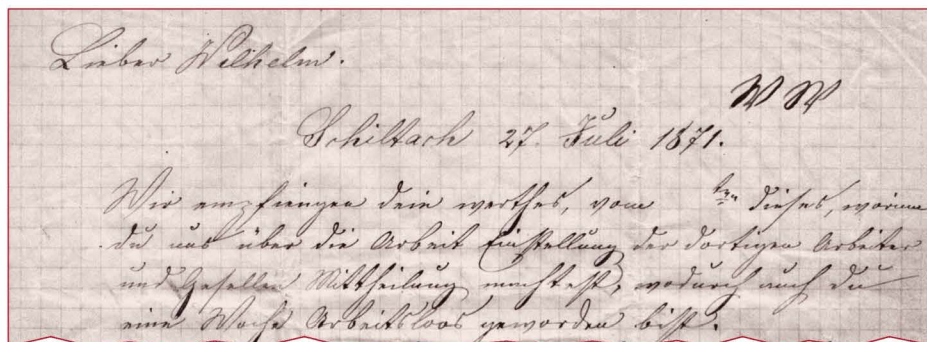 Lieber Wilhelm.
W W
Schiltach 27. Juli 1871.
Wir empfiengen dein werthes, vom ten dieses, worinn
du uns über die Arbeit Einstellung der dortigen Arbeiter
und Gesellen Mittheilung machtest, wodurch auch du
eine Woche Arbeitsloos geworden bist.